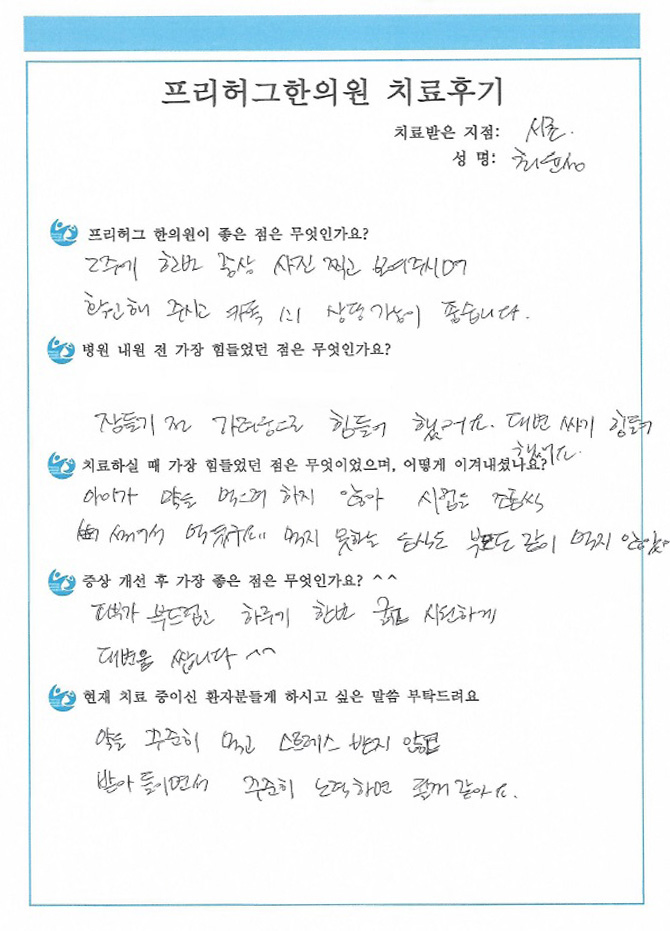 프리허그한의원 치료후기
치료받은 지점: 서초.
성 명:
프리허그 한의원이 좋은 점은 무엇인가요?
2주에 한번 증상 사진 찍고 보여주시며
확인해 주시고 카톡 1:1 상담가능이 좋습니다.
병원 내원 전 가장 힘들었던 점은 무엇인가요?
잠들기 전 가려움으로 힘들어 했어요. 대변 싸기 힘들어
했어요.
치료하실 때 가장 힘들었던 점은 무엇이었으며, 어떻게 이겨내셨나요?
아이가 약을 먹으려 하지 않아 시럽을 조금씩
섞어서 먹 먹지 못하는 음식도 부모도 같이 먹지 않았어
증상 개선 후 가장 좋은 점은 무엇인가요? ^^
피부가 부드럽고 하루에 한번 굵고 시원하게
대변을 쌉니다 ^^
현재 치료 중이신 환자분들게 하시고 싶은 말씀 부탁드려요
약을 꾸준히 먹고 스트레스 받지 않고
받아들이면서 꾸준히 노력하면 같아요.